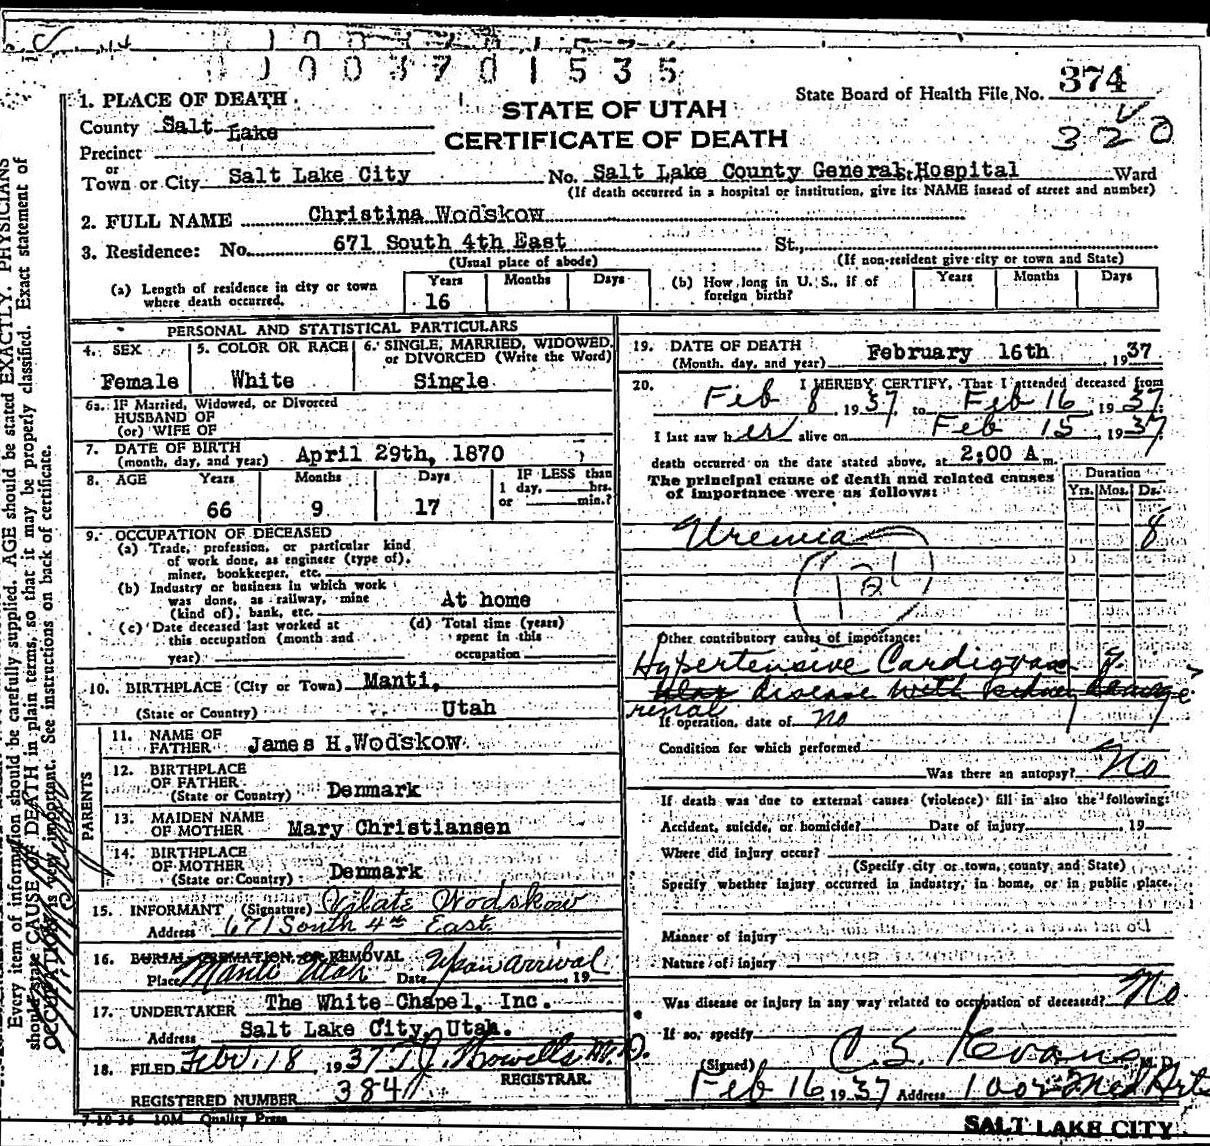 1003701535
STATE OF UTAH
CERTIFICATE OF DEATH
State Board of Health File No. 374
320
1. PLACE OF DEATH
County Salt Lake
Precinct
or
Town or City Salt Lake City No. Salt Lake County General Hospital Ward
(If death occurred in a hospital or institution, give its NAME insead of street and number)
2. FULL NAME Christina Wodskow
3. Residence: No. 671 South 4th East St.,
(Usual place of abode) (If non-resident give city or town and State)
(a) Length of residence in city or town where death occurred. Years 16 Months Days
(b) How long in U. S., if of foreign birth? Years Months Days
PERSONAL AND STATISTICAL PARTICULARS
4. SEX Female
5. COLOR OR RACE White
6. SINGLE, MARRIED, WIDOWED, or DIVORCED (Write the Word) Single
6a. IF Married, Widowed, or Divorced
HUSBAND OF
(or) WIFE OF
7. DATE OF BIRTH
(month, day, and year) April 29th, 1870
8. AGE Years 66 Months 9 Days 17 IF LESS than 1 day, hrs. or min.?
9. OCCUPATION OF DECEASED
(a) Trade, profession, or particular kind
of work done, as engineer (type of),
miner, bookkeeper, etc.
(b) Industry or business in which work
was done, as railway, mine
(kind of), bank, etc. At home
(c) Date deceased last worked at
this occupation (month and
year)
(d) Total time (years)
spent in this
occupation
10. BIRTHPLACE (City or Town) Manti,
(State or Country) Utah
PARENTS
11. NAME OF
FATHER James H. Wodskow
12. BIRTHPLACE
OF FATHER
(State or Country) Denmark
13. MAIDEN NAME
OF MOTHER Mary Christiansen
14. BIRTHPLACE
OF MOTHER
(State or Country) Denmark
15. INFORMANT (Signature) Vilate Wodskow
Address 671 South 4th East
16. BURIAL, CREMATION, OR REMOVAL
Place Manti Utah Date Upon arrival, 19
17. UNDERTAKER The White Chapel, Inc.
Address Salt Lake City, Utah.
18. FILED Feb. 18 1937 T. J. Howells M.D.
REGISTRAR.
REGISTERED NUMBER 384
7-10-36 10M Quality Press
19. DATE OF DEATH
(Month, day, and year) February 16th, 1937
20. I HEREBY CERTIFY, That I attended deceased from
Feb 8, 1937, to Feb 16, 1937.
I last saw her alive on Feb 15, 1937,
death occurred on the date stated above, at 2:00 A m.
The principal cause of death and related causes
of importance were as follows:
Duration
Yrs. Mos. Ds.
Uremia 8
131
Other contributory causes of importance:
Hypertensive Cardiovas- ?
cular disease with kidney damage
renal
If operation, date of no
Condition for which performed
Was there an autopsy? No
If death was due to external causes (violence) fill in also the following:
Accident, suicide, or homicide? Date of injury, 19
Where did injury occur?
(Specify city or town, county, and State)
Specify whether injury occurred in industry, in home, or in public place.
Manner of injury
Nature of injury
Was disease or injury in any way related to occupation of deceased? No
If so, specify
(Signed) C. S. Evans M.D.
Feb 16, 1937 Address 1002 Med Arts
SALT LAKE CITY
Every item of information should be carefully supplied. AGE should be stated EXACTLY. PHYSICIANS
should state CAUSE OF DEATH in plain terms, so that it may be properly classified. Exact statement of
OCCUPATION is very important. See instructions on back of certificate.